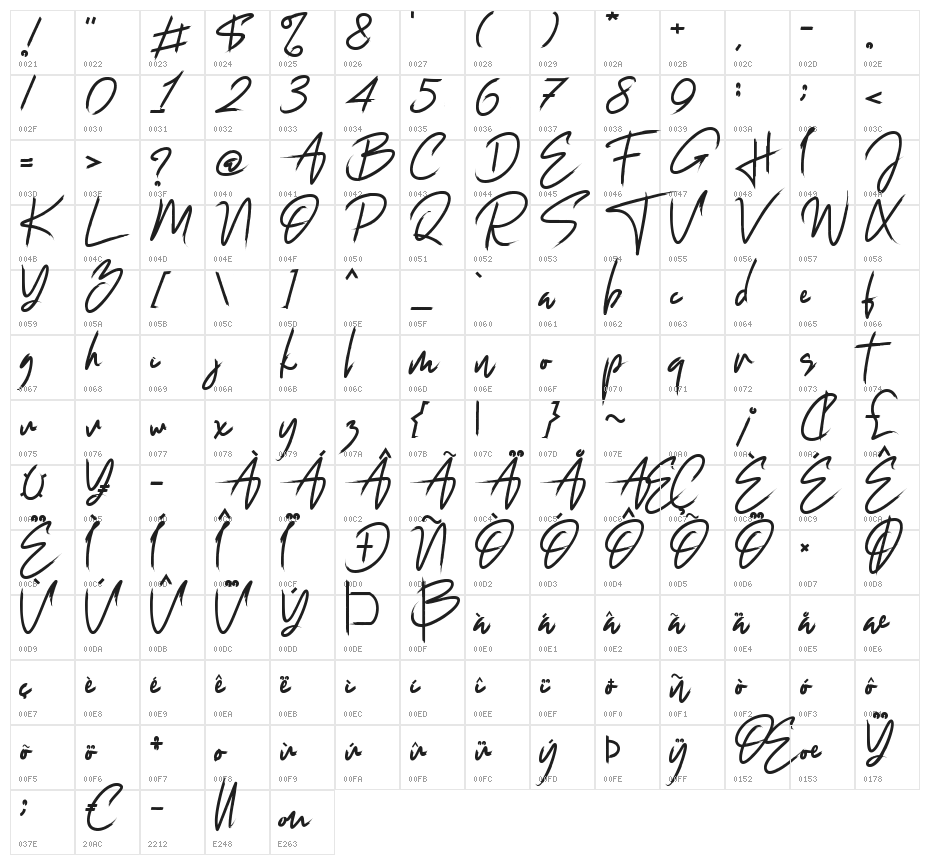 ! " # $ % & ' ( ) * + , - .
0021 0022 0023 0024 0025 0026 0027 0028 0029 002A 002B 002C 002D 002E
/ 0 1 2 3 4 5 6 7 8 9 : ; <
002F 0030 0031 0032 0033 0034 0035 0036 0037 0038 0039 003A 003B 003C
= > ? @ A B C D E F G H I J
003D 003E 003F 0040 0041 0042 0043 0044 0045 0046 0047 0048 0049 004A
K L M N O P Q R S T U V W X
004B 004C 004D 004E 004F 0050 0051 0052 0053 0054 0055 0056 0057 0058
Y Z [ \ ] ^ _ ` a b c d e f
0059 005A 005B 005C 005D 005E 005F 0060 0061 0062 0063 0064 0065 0066
g h i j k l m n o p q r s t
0067 0068 0069 006A 006B 006C 006D 006E 006F 0070 0071 0072 0073 0074
u v w x y z { | } ~ ¡ ¢ £
0075 0076 0077 0078 0079 007A 007B 007C 007D 007E 00A0 00A1 00A2 00A3
¤ ¥ - À Á Â Ã Ä Å Æ Ç È É Ê
00A4 00A5 00AD 00C0 00C1 00C2 00C3 00C4 00C5 00C6 00C7 00C8 00C9 00CA
Ë Ì Í Î Ï Ð Ñ Ò Ó Ô Õ Ö × Ø
00CB 00CC 00CD 00CE 00CF 00D0 00D1 00D2 00D3 00D4 00D5 00D6 00D7 00D8
Ù Ú Û Ü Ý Þ ß à á â ã ä å æ
00D9 00DA 00DB 00DC 00DD 00DE 00DF 00E0 00E1 00E2 00E3 00E4 00E5 00E6
ç è é ê ë ì í î ï ð ñ ò ó ô
00E7 00E8 00E9 00EA 00EB 00EC 00ED 00EE 00EF 00F0 00F1 00F2 00F3 00F4
õ ö ÷ ø ù ú û ü ý þ ÿ Œ œ Ÿ
00F5 00F6 00F7 00F8 00F9 00FA 00FB 00FC 00FD 00FE 00FF 0152 0153 0178
; € −
037E 20AC 2212 E248 E263